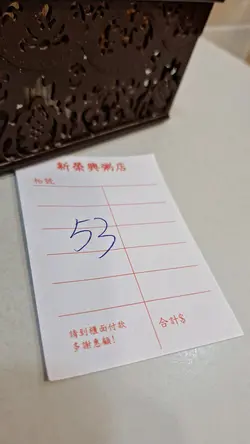 新榮興粥店
枱號
53
請到櫃面付款
多謝惠顧!
合計$